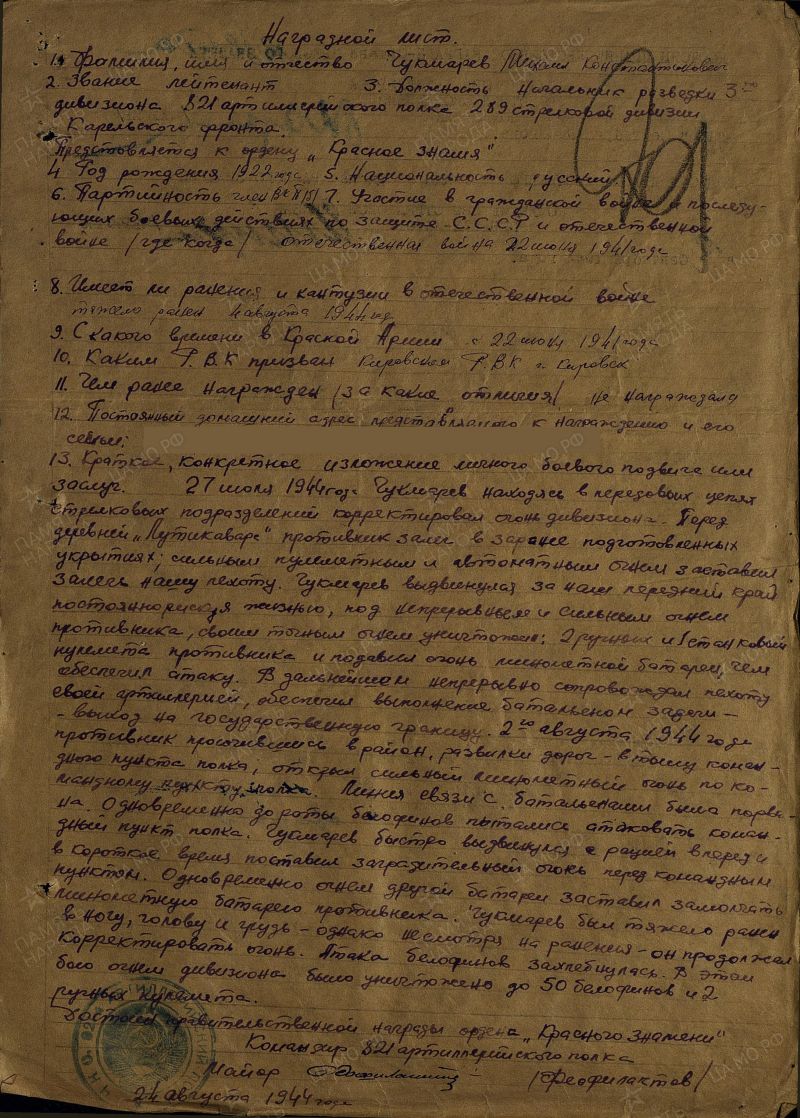 Наградной лист.
1. Фамилия, имя и отчество Чукмарев Михаил Константинович
2. Звание лейтенант 3. Должность Начальник разведки 3го
дивизиона 821 артиллерийского полка 289 стрелковой дивизии
Карельского фронта.
Представляется к ордену „Красное знамя"
4. Год рождения 1922 года 5. Национальность русский
6. Партийность член ВКП(б) 7. Участие в гражданской войне и последу-
ющих боевых действиях по защите С.С.С.Р и отечественной
войне /где когда/ отечественная война 22 июня 1941 года
8. Имеет ли ранения и кантузии в отечественной войне
тяжело ранен 4 августа 1944 год
9. С какого времени в Красной Армии с 22 июня 1941 года
10. Каким Р.В.К призван Кировским Р.В.К г. Кировск
11. Чем ранее награжден /за какие отличия/ не награждался
12. Постоянный домашний адрес представляемого к награждению и его
семьи:
13. Краткое, конкретное изложение личного боевого подвига или
заслуг. 27 июля 1944 год Чукмарев находясь в передовых цепях
стрелковых подразделений корректировал огонь дивизиона. Перед
деревней „Лутикавара" противник залег в заранее подготовленных
укрытиях; сильным пулеметным и автоматным огнем заставил
залечь нашу пехоту. Чукмарев выдвинулся за наш передний край
постоянно рискуя жизнью, под непрерывным и сильным огнем
противника, своим точным огнем уничтожил: 2 ручных и 1 станковый
пулемета противника и подавил огонь минометной батареи, чем
обеспечил атаку. В дальнейшем непрерывно сопровождал пехоту
своей артиллерией, обеспечил выполнение батальеном задачи -
- выход на государственную границу. 2го августа 1944 года
противник просочившись в район, развилки дорог - в тылу коман-
дного пункта полка; открыл сильный минометный огонь по ко-
мандному пункту полка. Линия связи с батальенами была порва-
на. Одновременно до роты белофинов пытались атаковать коман-
дный пункт полка. Чукмарев быстро выдвинулся с рацией вперед и
в короткое время поставил заградительный огонь перед командным
пунктом. Одновременно огнем другой батареи заставил замолчать
минометную батарею противника. Чукмарев был тяжело ранен
в ногу, голову и грудь - однако несмотря на ранения - он продолжал
корректировать огонь. Атака белофинов захлебнулась. В этом
бою огнем дивизиона было уничтожено до 50 белофинов и 2
ручных пулемета.
Достоин правительственной награды ордена „Красного Знамени"
Командир 821 артиллерийского полка
Майор /Феофилактов/
24 августа 1944 года